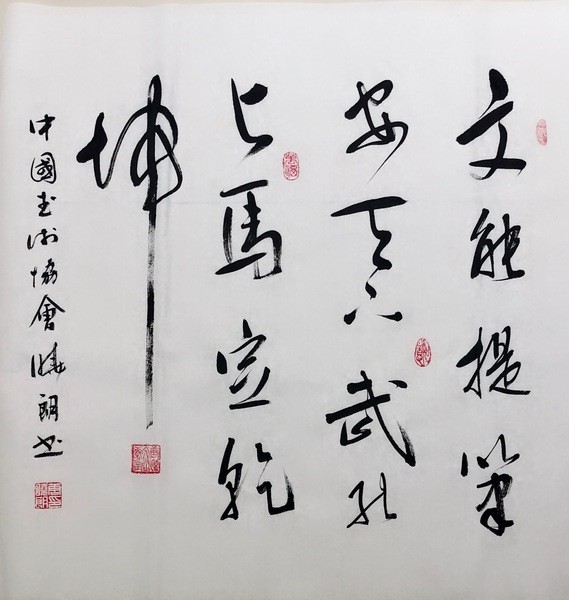 文能提筆
安天下武能
上馬定乾
坤
中國書法協會曉朗書